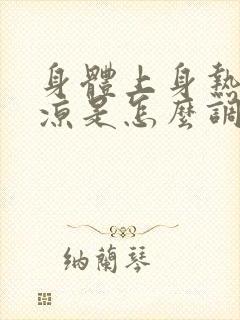 身體上身熱
涼是怎麼調
納蘭琴